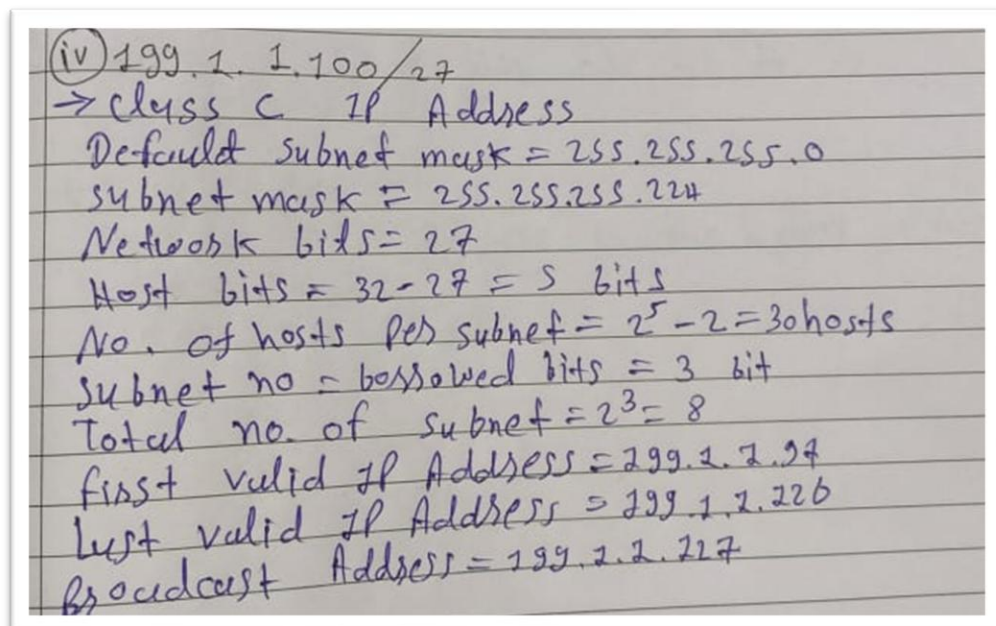 (iv) 199.1.1.100/27
→ Class C IP Address
Default subnet mask = 255.255.255.0
subnet mask = 255.255.255.224
Network bits = 27
Host bits = 32-27 = 5 bits
No. of hosts per subnet = 2⁵-2 = 30 hosts
subnet no = borrowed bits = 3 bit
Total no. of subnet = 2³ = 8
first valid IP Address = 199.1.1.97
Last valid IP Address = 199.1.1.126
Broadcast Address = 199.1.1.127